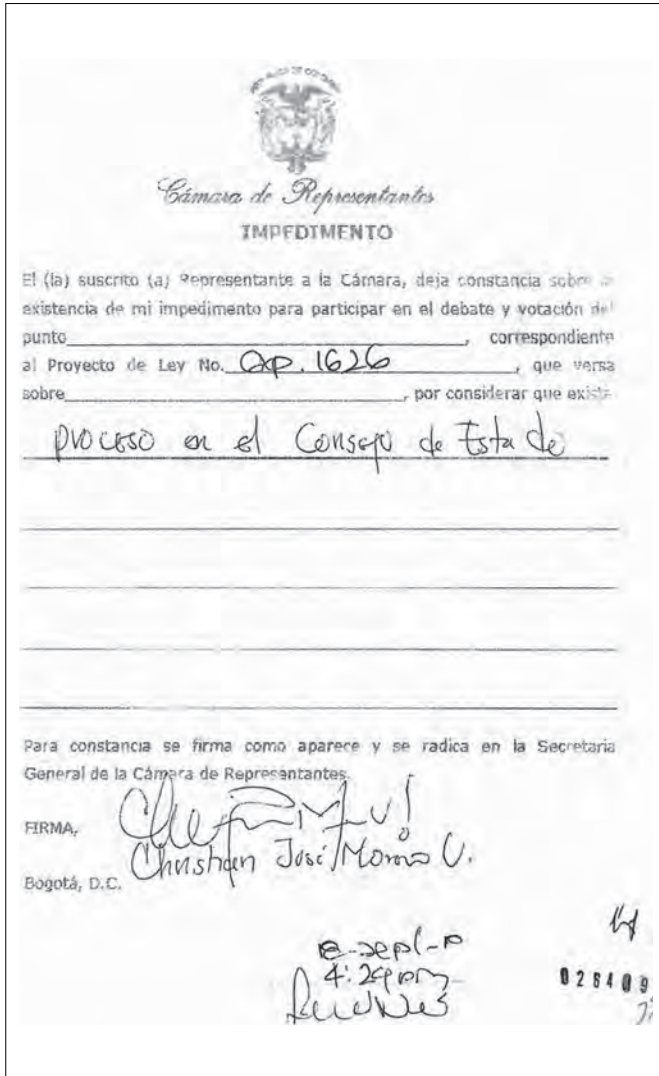 REPUBLICA DE COLOMBIA
Cámara de Representantes
IMPEDIMENTO
El (la) suscrito (a) Representante a la Cámara, deja constancia sobre la
existencia de mi impedimento para participar en el debate y votación del
punto________, correspondiente
al Proyecto de Ley No. 1626, que versa
sobre________, por considerar que existe
proceso en el Consejo de Estado
Para constancia se firma como aparece y se radica en la Secretaria
General de la Cámara de Representantes.
FIRMA,
Christian José Moreno V.
Bogotá, D.C.
026409